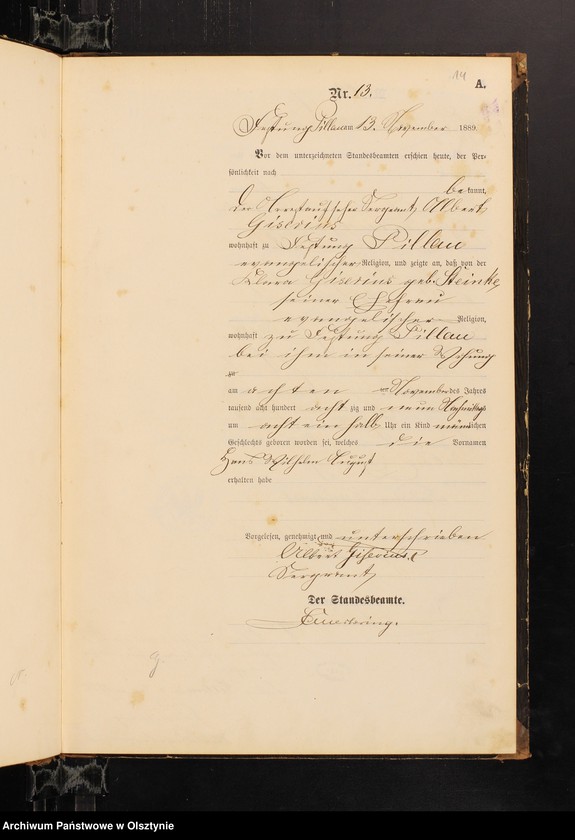 14
A.
Nr. 13.
Festung Pillau am 13. November 1889.
Vor dem unterzeichneten Standesbeamten erschien heute, der Per-
sönlichkeit nach
be kannt,
der Arrestaufseher Sergeant Albert
Giserius
wohnhaft zu Festung Pillau
evangelischer Religion, und zeigte an, daß von der
Clara Giserius geb. Steinke,
seiner Ehefrau
evangelischer Religion,
wohnhaft zu Festung Pillau
bei ihm in seiner Wohnung
zu
am achten November des Jahres
tausend acht hundert acht zig und neun Nachmittags
um acht ein halb Uhr ein Kind männlichen
Geschlechts geboren worden sei, welches die Vornamen
Hans Wilhelm August
erhalten habe
Vorgelesen, genehmigt und unterschrieben
Albert Giserius
Sergeant
Der Standesbeamte.
Archiwum Państwowe w Olsztynie